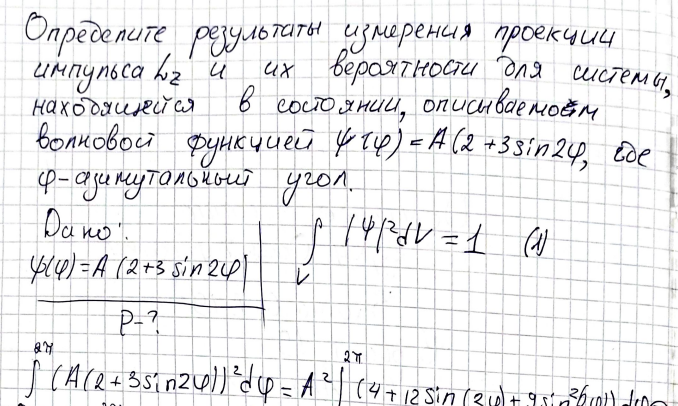 Определите результаты измерения проекции
импульса Lz и их вероятности для системы,
находящейся в состоянии, описываемом
волновой функцией ψ(φ) = A(2+3sin2φ, где
φ-азимутальный угол.
Дано:
ψ(φ)=A(2+3sin2φ)
P-?
∫ |ψ|²dV = 1 (1)
V
2π 2π
∫ (A(2+3sin2φ))²dφ = A² ∫ (4+12sin(2φ)+9sin²